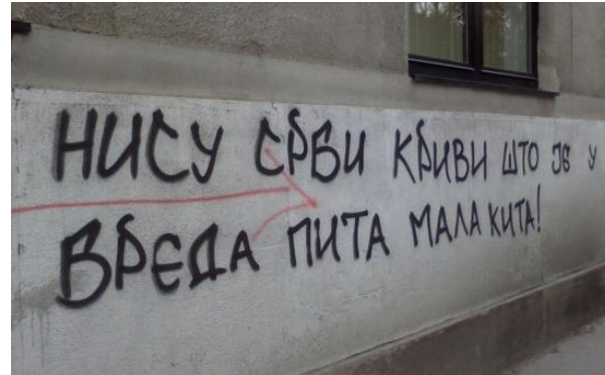 НИСУ СРБИ КРИВИ ШТО ЈЕ У
ВРЕДА ПИТА МАЛА КИТА!